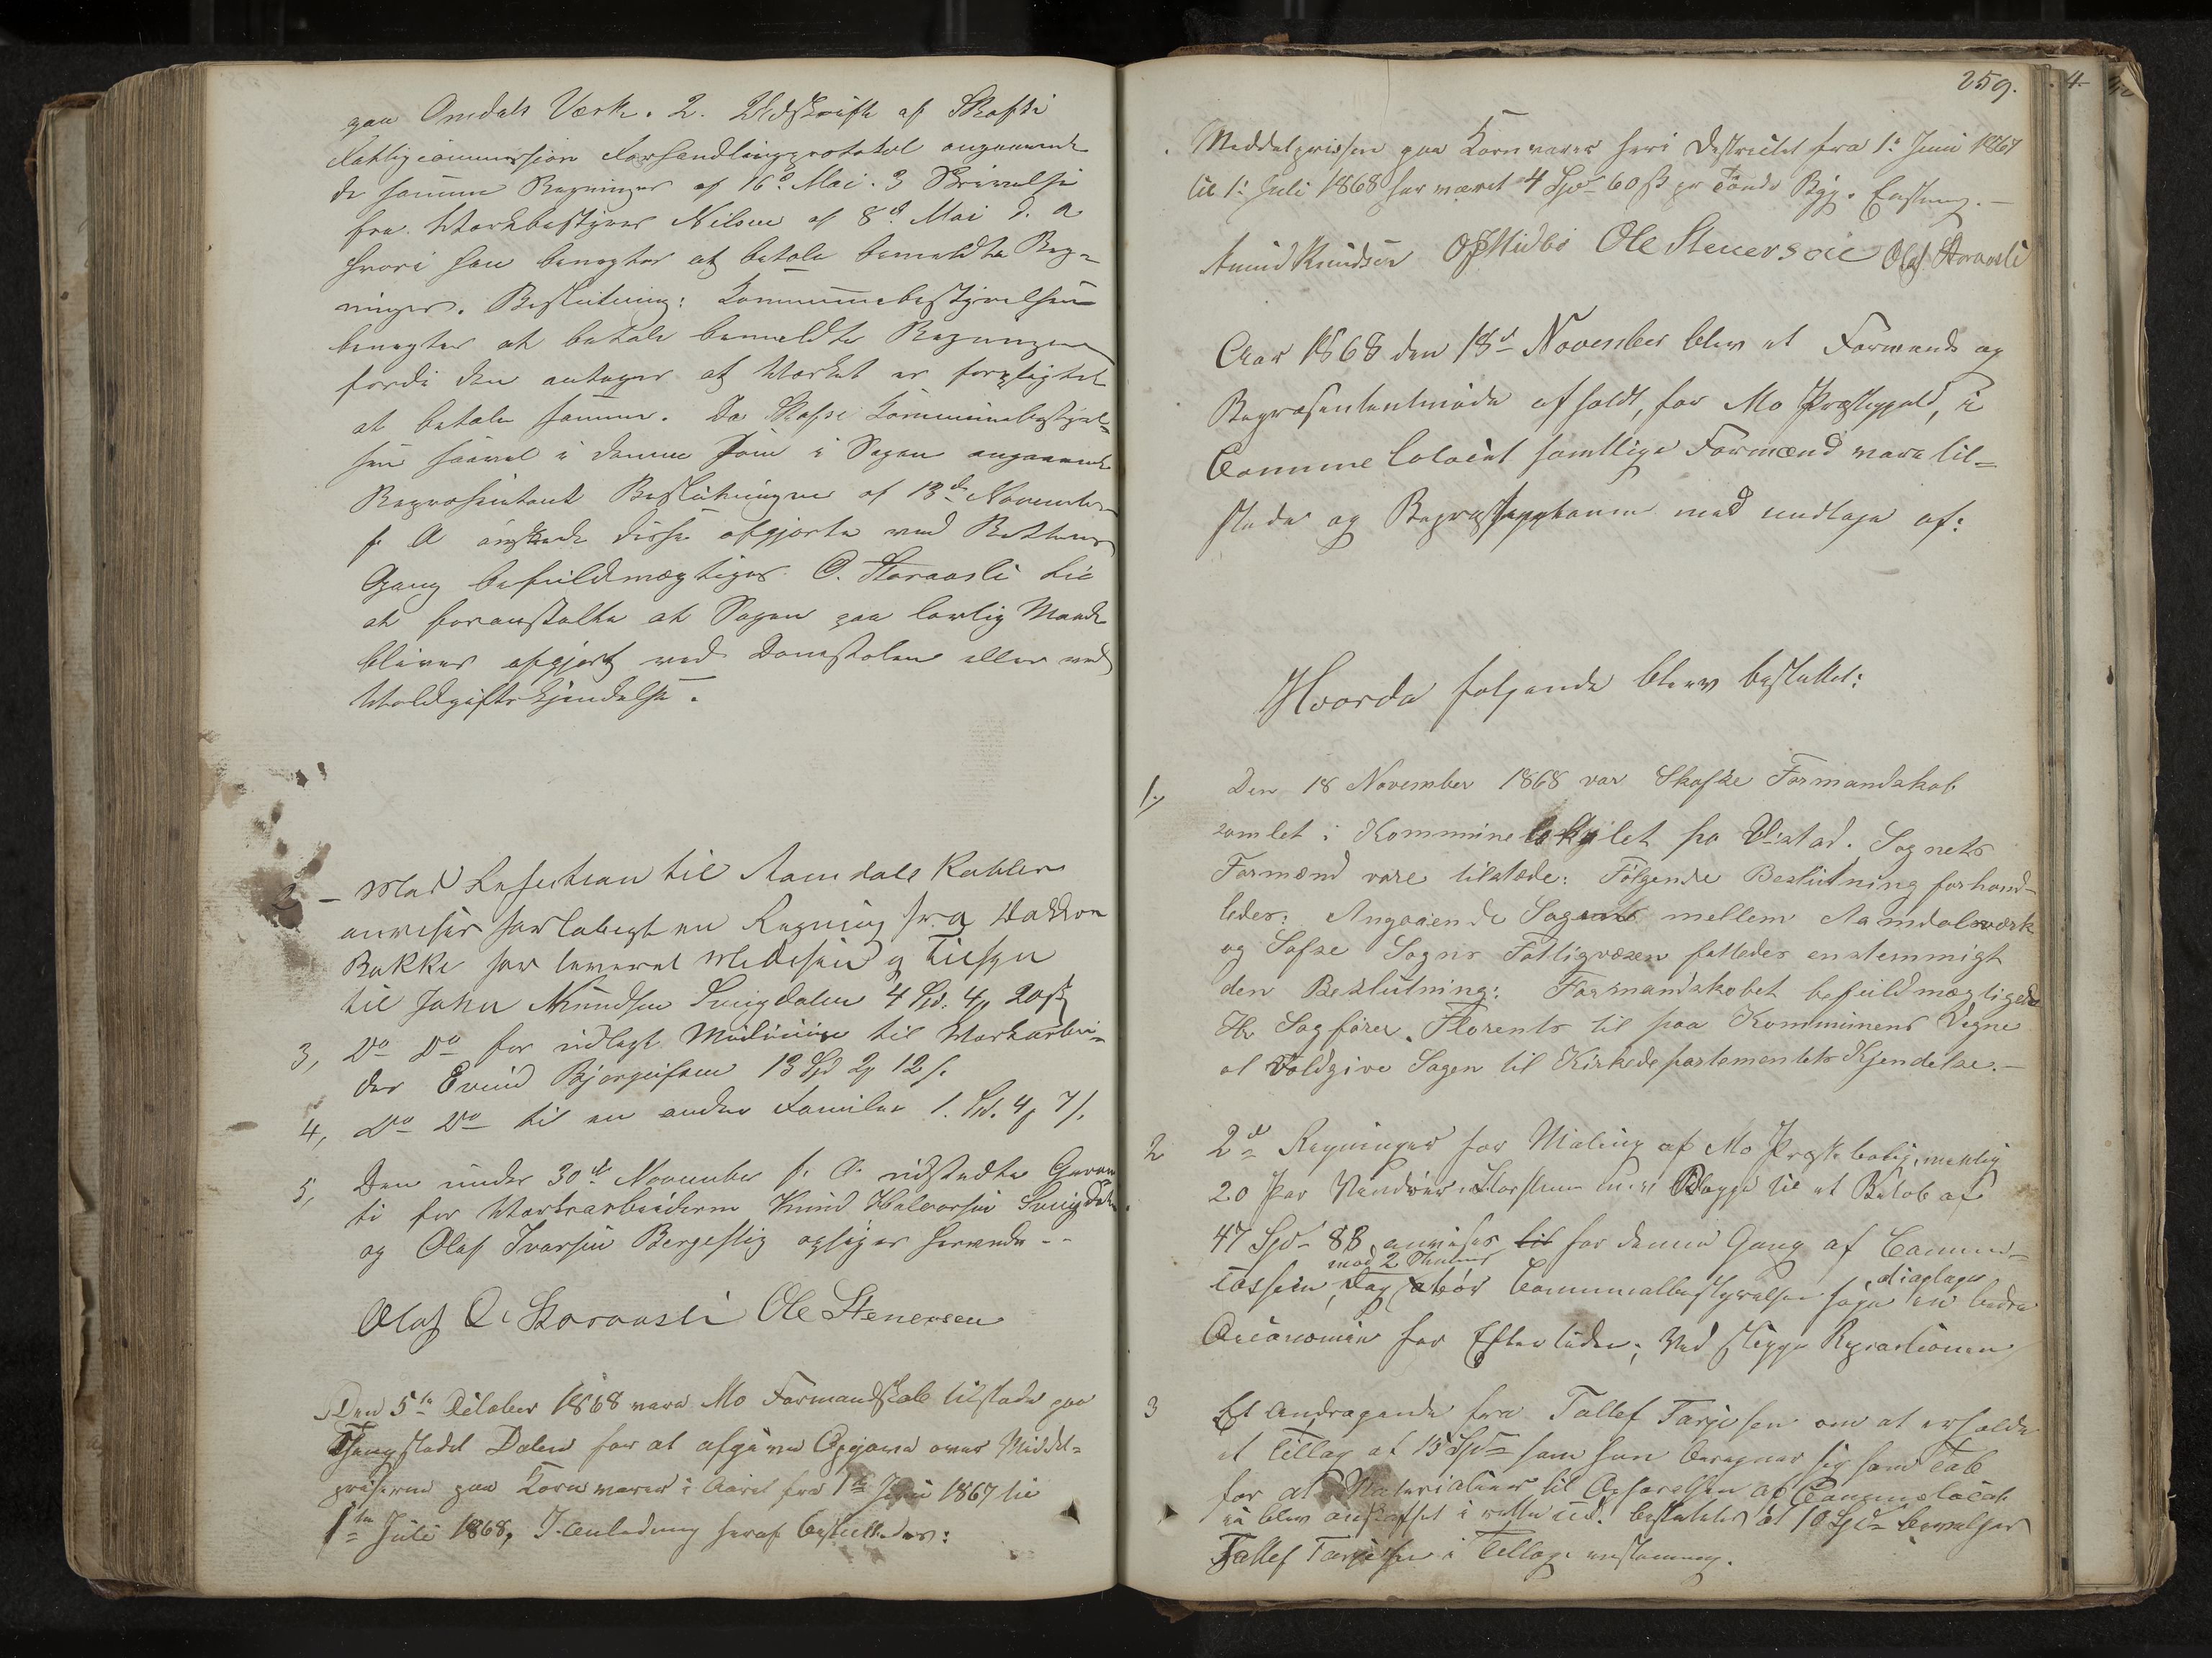 paa Omdals Værk. 2. Udskrift af Skafse
Fattigcommission Forhandlingsprotokol angaaende
de samme Regninger af 16de Mai. 3 Skrivelse
fra Værkbestyrer Nilsen af 8de Mai d. A
hvori han benegter at betale bemeldte Reg-
ninger. Beslutning: Kommunebestyrelsen
benegter at betale bemeldte Regninger
fordi den antager at Værket er forpligtet
at betale samme. Da Skafse Kommunebestyrel-
sen saavel i denne som i Sagen angaaende
Repræsentant Beslutningen af 13de November
f. A ønskede disse afgjorte ved Rettens
Gang befuldmægtiges O. Storaasli til
at foranstalte at Sagen paa lovlig Maade
bliver afgjort ved Domstolene eller ved
Voldgiftskjendelse.
2 - Med til Aamdals Kobber
forlangt en Regning fra
Bakke for leveret Medesin og
til John Amundsen Lingdalen 4 Spd. 4 20 ß
3, Do Do for udlagt Medicin til Værkarbei-
der Evind Bjorgufsen 13 Spd 2 12 s.
4, Do Do til en anden Familie 1. Spd. 4 7 s.
5, Den under 30de November f. A. udstedte Garan
ti for Værksarbeiderne Knud Halvorsen
og Olaf Ivarsen Bergestig opsiges herved --
Olaf O. Storaasli Ole Stenersen
Den 5te October 1868 vare Mo Formandskab tilstede paa
Thingstedet Dalen for at afgive Opgjøre over Middel-
priserne paa Kornvarer i Aaret fra 1ste Juni 1867 til
1ste Juli 1868, I Anledning heraf besluttedes:
259.
Meddelprisen paa Kornvarer heri Destrictet fra 1ste Juni 1867
til 1ste Juli 1868 har været 4 Spd 60 ß pr Tønde Byg. Enstemmig. -
Amund Knudsen O Midbø Ole Stenersen Olaf Storaasli
Aar 1868 den 18de November blev et Formands og
Repræsentantmøde afholdt, for Mo Præstegjeld, i
Commune Localet samtlige Formænd vare til-
stede og Repræsentanterne med undtagen af:
Hvorda følgende blev besluttet:
1. Den 18 November 1868 var Skafse Formandskab
samlet i Kommunelokalet pa Vistad. Sognets
Formænd vare tilstæde: Følgende Beslutning forhand-
ledes: Angaaende Sagen mellem Aamdalsværk
og Safse Sogns Fattigvæsen fattedes enstemmigt
den Beslutning: Formandskabet befuldmægtigede
Hr. Sagfører Florents til paa Kommunens Vegne
at Voldgive Sagen til Kirkedepartementets Kjendelse. -
2 2de Regninger for Maling af Mo Præstebolig, nemlig
20 Par Vinduer til et Beløb af
47 Spd 83 anvises til for denne Gang af Commu-
med 2 Stemmer
cassen, dog bør Communebestyrelsen søge en bedre
Oeconomie for Eftertiden; Ved slige Reparationer
3 Et Andragende fra Tallef Tarjesen om at erholde
et Tillæg af 15 Spd som han beregner sig som Tab
for at Materialier til Opførelsen af Communelocal
ei blev anskaffet i rette tid. besluttedes at 10 Spd bevilges
Tallef Tarjesen i Tillæg enstemmig.